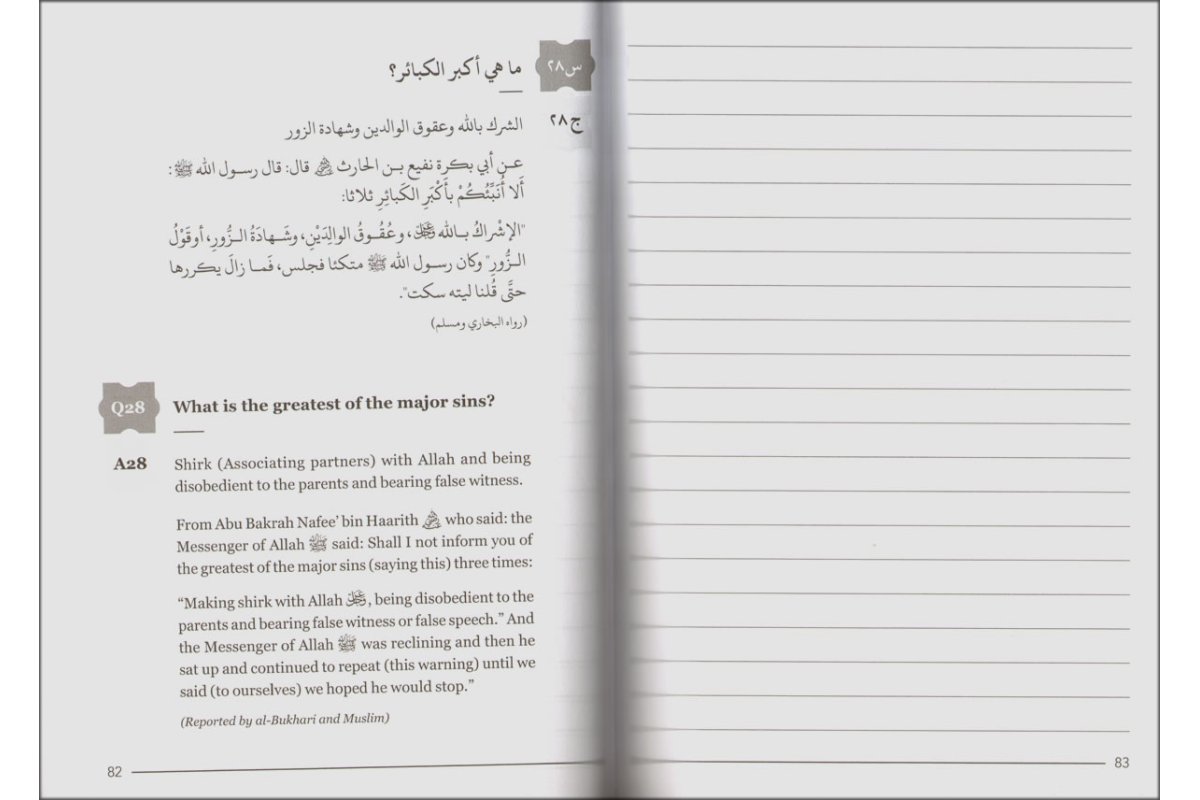 س٢٨
ما هي أكبر الكبائر؟
ج٢٨
الشرك بالله وعقوق الوالدين وشهادة الزور
عن أبي بكرة نفيع بن الحارث رضي الله عنه قال: قال رسول الله ﷺ:
أَلا أُنَبِّئُكُمْ بأَكْبَرِ الكَبائِرِ ثلاثا:
"الإشْراكُ بالله ﷻ، وعُقُوقُ الوالِدَيْنِ، وشَهادَةُ الزُّورِ، أو قَوْلُ
الزُّورِ" وكان رسول الله ﷺ متكئا فجلس، فَما زالَ يكررها
حتَّى قُلنا ليته سكت".
(رواه البخاري ومسلم)
Q28
What is the greatest of the major sins?
A28
Shirk (Associating partners) with Allah and being
disobedient to the parents and bearing false witness.
From Abu Bakrah Nafee' bin Haarith رضي الله عنه who said: the
Messenger of Allah ﷺ said: Shall I not inform you of
the greatest of the major sins (saying this) three times:
"Making shirk with Allah ﷻ, being disobedient to the
parents and bearing false witness or false speech." And
the Messenger of Allah ﷺ was reclining and then he
sat up and continued to repeat (this warning) until we
said (to ourselves) we hoped he would stop."
(Reported by al-Bukhari and Muslim)
82
83